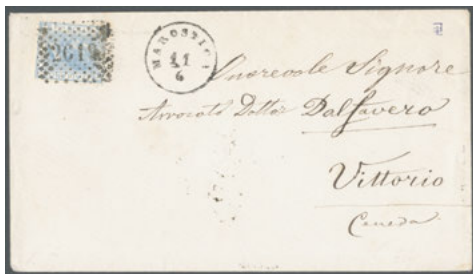 2619
MAROSTICA
11
6
Onorevole Signore
Avvocato Dottor Dalfavero
Vittorio
Ceneda